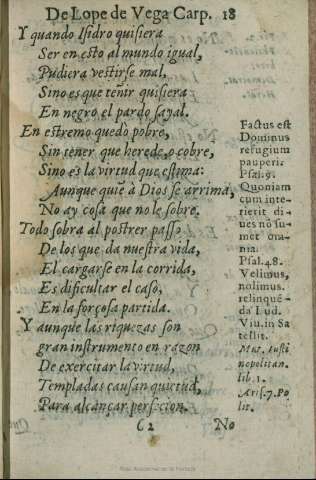 De Lope de Vega Carp. 18
Y quando Isidro quisiera
Ser en esto al mundo igual,
Pudiera vestirse mal,
Sino es que teñir quisiera
En negro el pardo sayal.
En estremo quedo pobre,
Sin tener que herede, o cobre,
Sino es la virtud que estima:
Aunque quiē à Dios se arrima,
No ay cosa que no le sobre.
Todo sobra al postrer passo
De los que da nuestra vida,
El cargarse en la corrida,
Es dificultar el caso,
En la forçosa partida.
Y aunque las riquezas son
gran instrumento en razon
De exercitar la virtud,
Templadas causan quietud
Para alcançar perfecion.
Factus est
Dominus
refugium
pauperi.
Psal. 9.
Quoniam
cum inte-
rierit di-
ues nō su-
met om-
nia.
Psal. 48.
Velimus,
nolimus.
relinquē-
da Lud.
Viu. in Sa
tellit.
Mut. Iusti
nopolitan.
lib. 1.
Aris. 7. Po
lit.
C2 No
Real Academia de la Historia